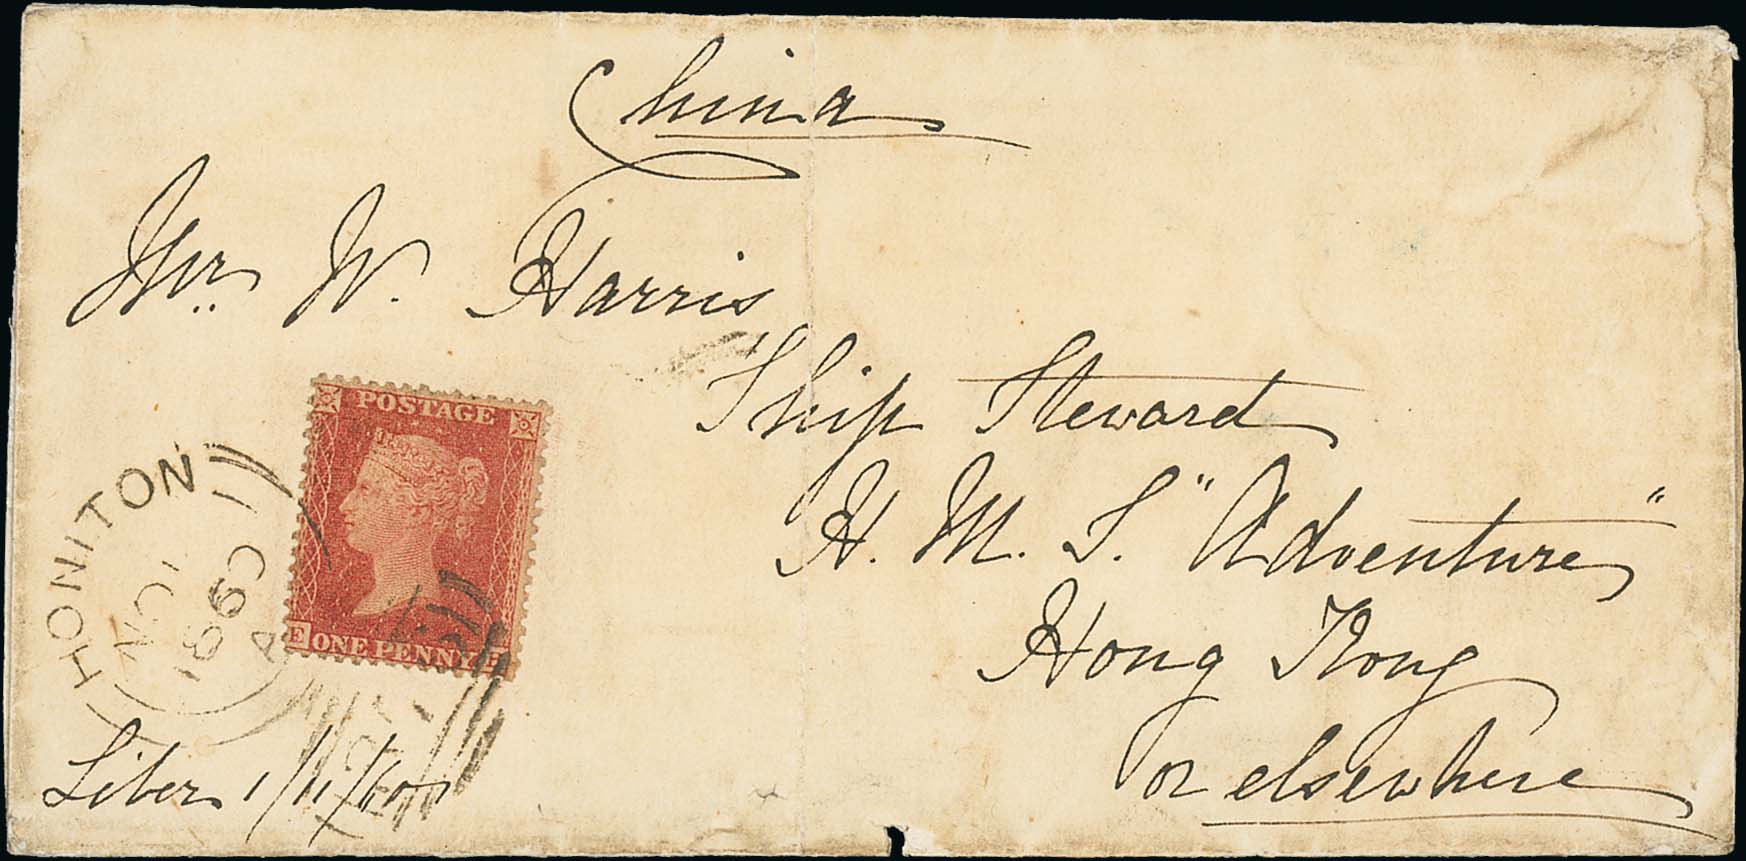 China
Mr. W. Harris
Ship Steward
H. M. S. "Adventure"
Hong Kong
or elsewhere
POSTAGE
ONE PENNY
E
HONITON
NO 1
1860
A
1/11/60